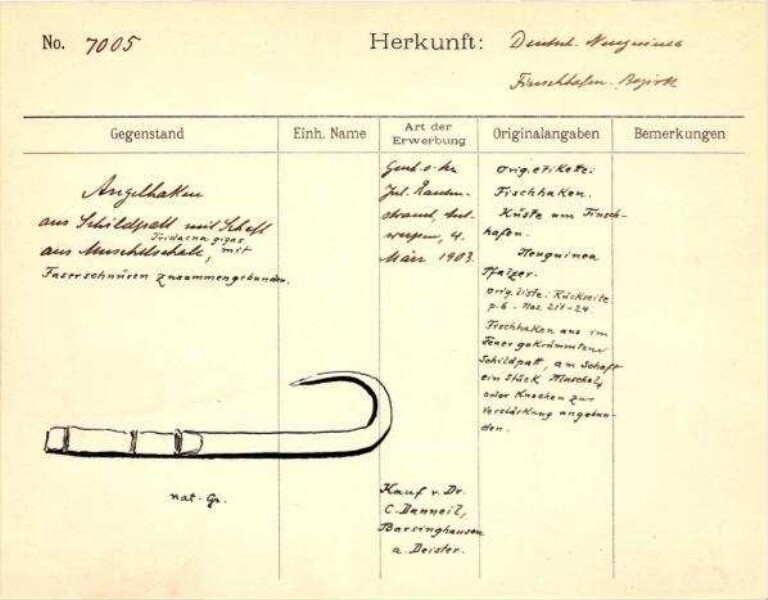 No. 7005
Herkunft: Deutsch. Neuguinea
Finschhafen-Bezirk
Gegenstand
Einh. Name
Art der
Erwerbung
Originalangaben
Bemerkungen
Angelhaken
aus Schildpatt mit Schaft
Tridacna gigas
aus Muschelschale, mit
Faserschnüren zusammengebunden.
nat. Gr.
Jul.
werpen, 4.
März 1903.
Kauf v. Dr.
C. Danneil,
Barsinghausen
a. Deister.
Orig. etikette:
Fischhaken.
Küste um Finsch-
hafen.
Neuguinea
orig. liste: Rückseite
p. 6. Noz 217-24.
Fischhaken aus im
Feuer gekrümmten
Schildpatt, am Schaft
ein Stück Muschel,
oder Knochen zur
Verstärkung angebun-
den.